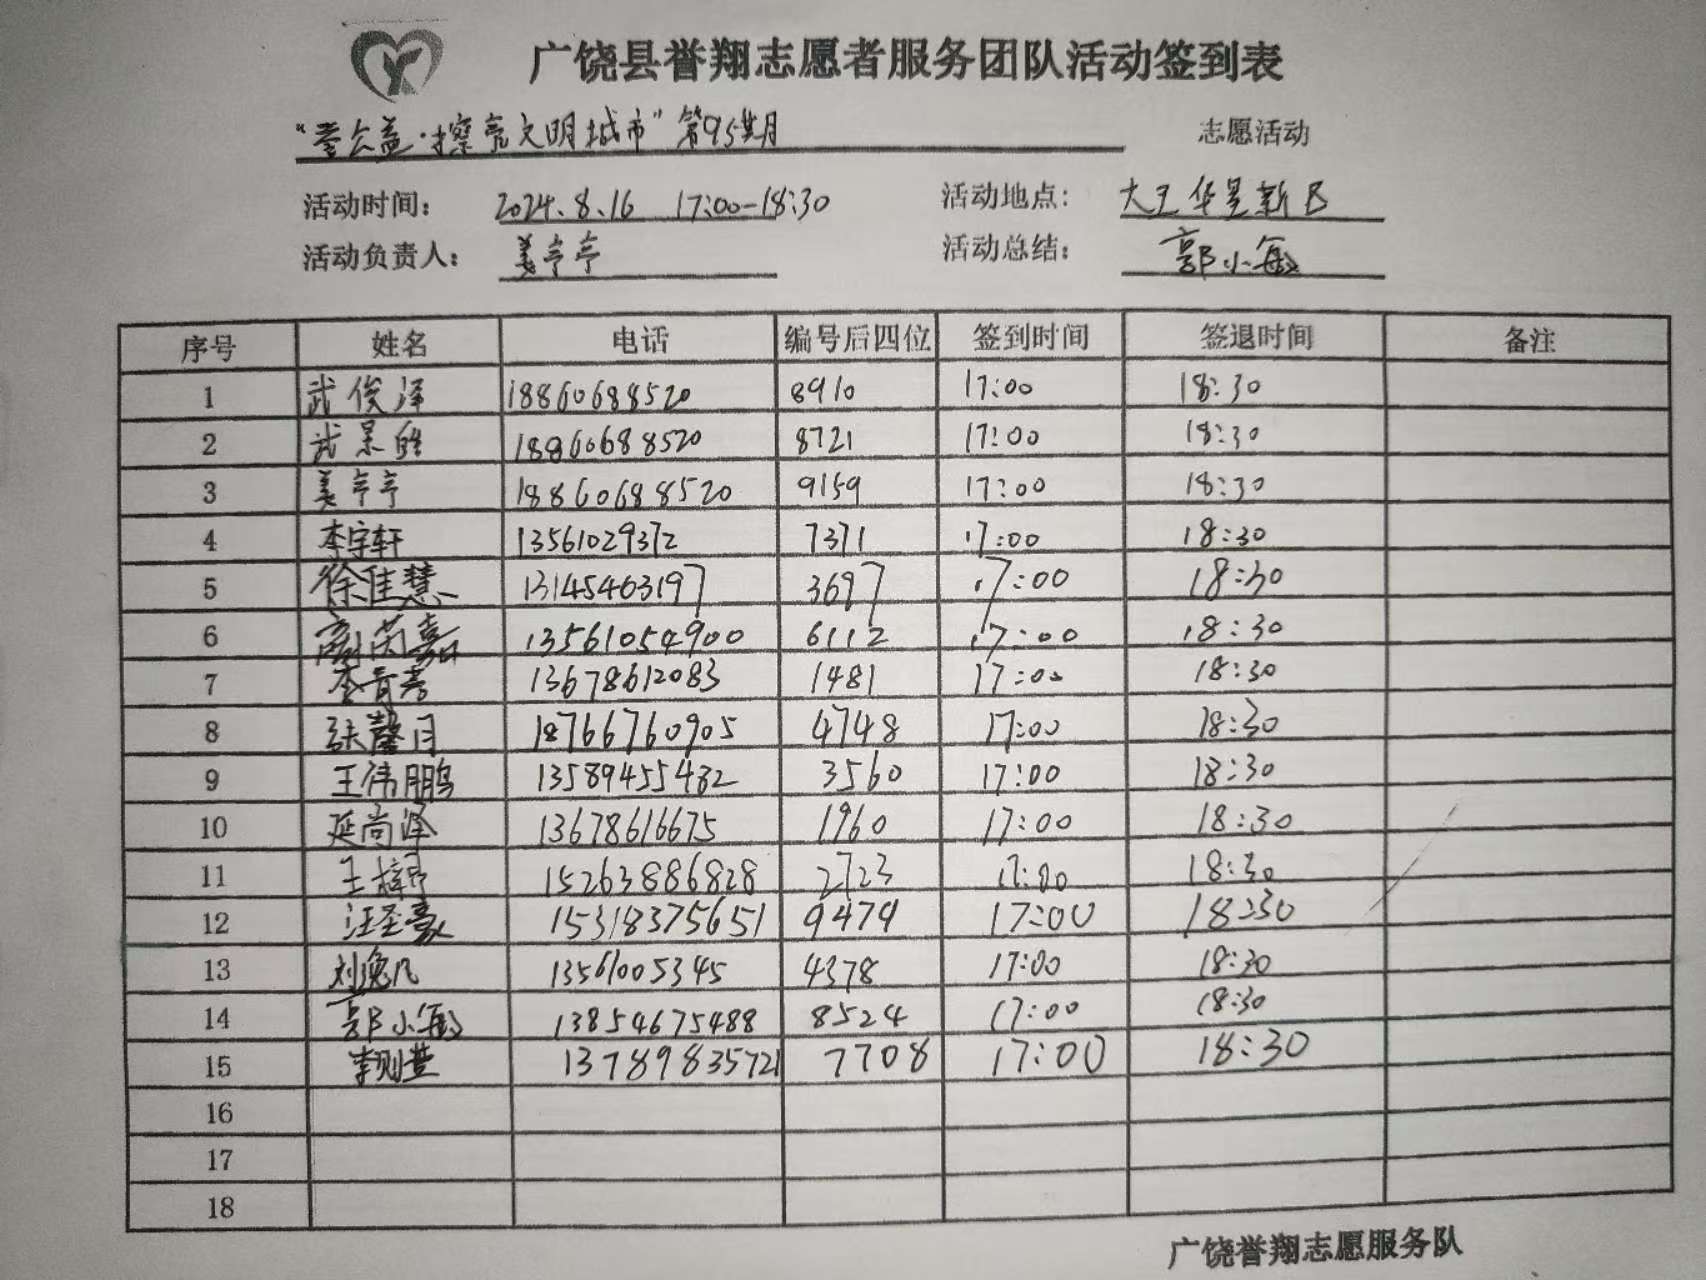 广饶县誉翔志愿者服务团队活动签到表
“童公益·擦亮文明城市”第95期 志愿活动
活动时间: 2024.8.16 17:00-18:30 活动地点: 大王华星新区
活动负责人: 姜亭亭 活动总结: 郭小敏
序号 姓名 电话 编号后四位 签到时间 签退时间 备注
1 武俊泽 18860688520 8910 17:00 18:30
2 武景皓 18860688520 8721 17:00 18:30
3 姜亭亭 18860688520 9159 17:00 18:30
4 李宇轩 13561029372 7371 17:00 18:30
5 徐佳慧 13145463197 3697 17:00 18:30
6 13561054900 6112 17:00 18:30
7 李育嘉 13678612083 1481 17:00 18:30
8 张馨月 18766760905 4748 17:00 18:30
9 王伟鹏 13589455432 3560 17:00 18:30
10 延尚泽 13678616675 1960 17:00 18:30
11 15263886828 2723 17:00 18:30
12 汪圣豪 15318375651 9479 17:00 18:30
13 刘逸凡 13561005345 4378 17:00 18:30
14 郭小敏 13854675488 8524 17:00 18:30
15 李则萱 13789835721 7708 17:00 18:30
16
17
18
广饶誉翔志愿服务队